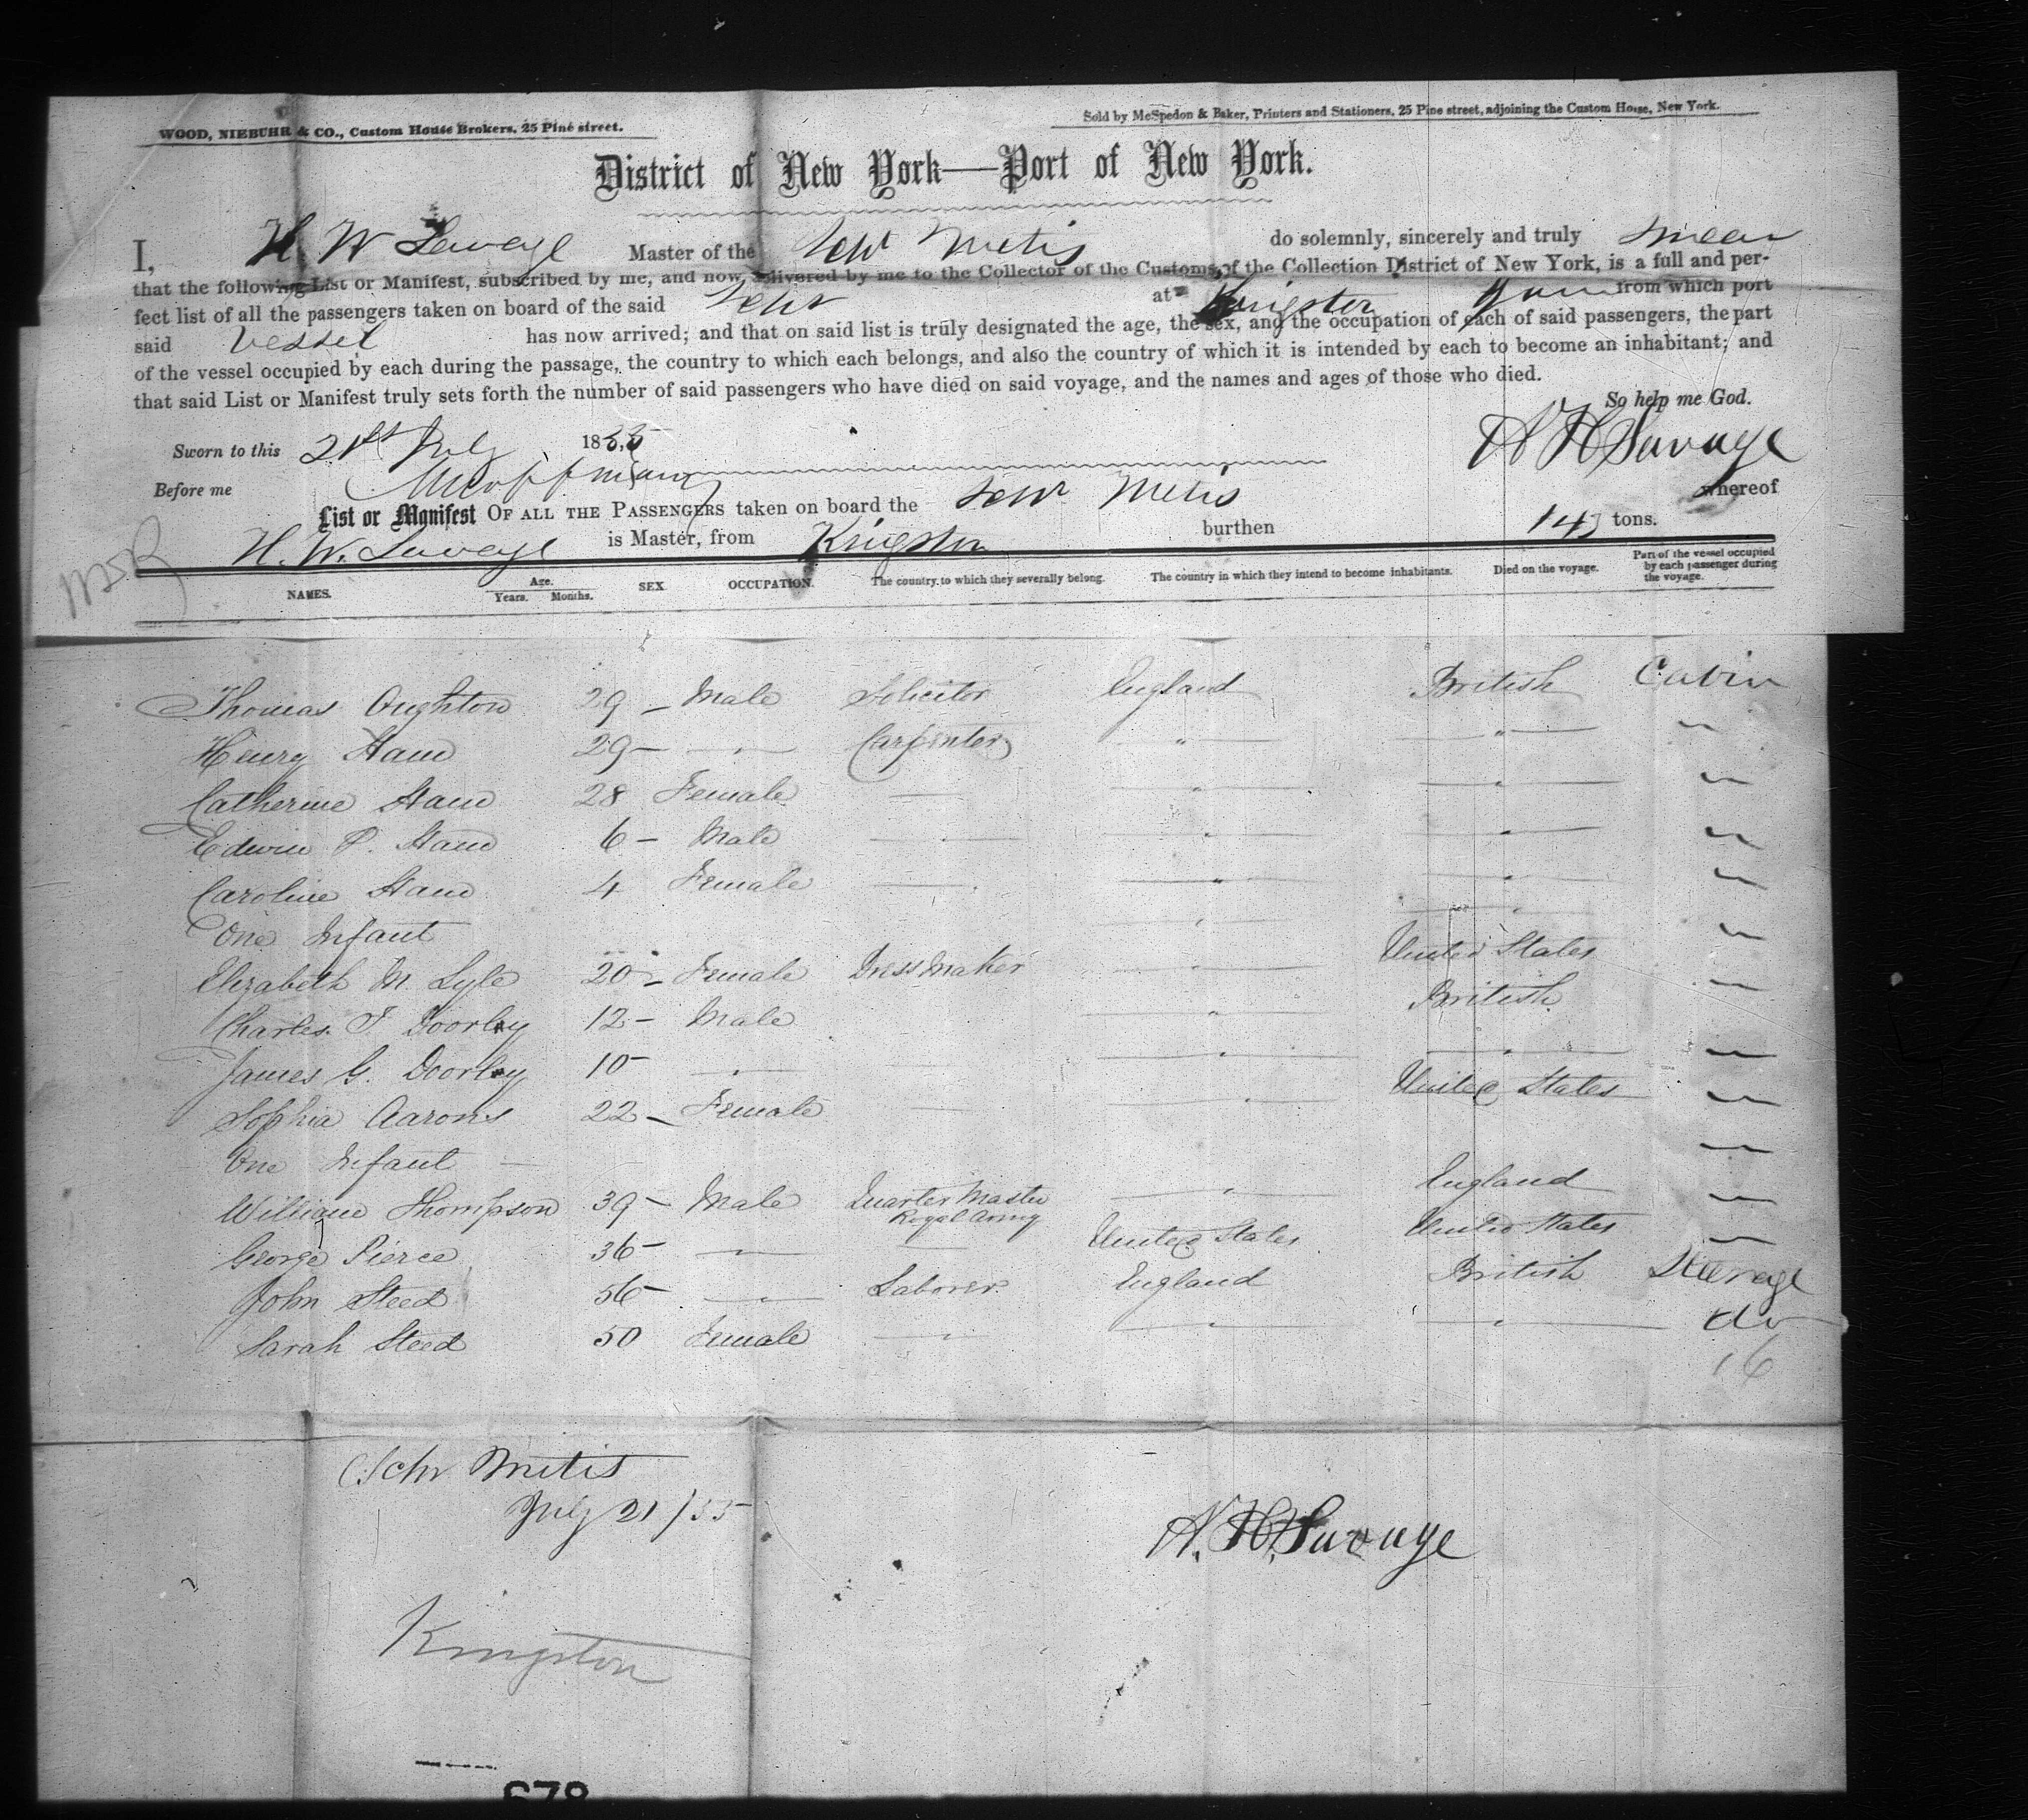 WOOD, NIEBUHR & CO., Custom House Brokers, 25 Pine street.
Sold by McSpedon & Baker, Printers and Stationers, 25 Pine street, adjoining the Custom House, New York.
District of New York—Port of New York.
I, H. W Savage Master of the Schr Metis do solemnly, sincerely and truly swear
that the following List or Manifest, subscribed by me, and now delivered by me to the Collector of the Customs of the Collection District of New York, is a full and per-
fect list of all the passengers taken on board of the said Schr at Kingston Jam from which port
said Vessel has now arrived; and that on said list is truly designated the age, the sex, and the occupation of each of said passengers, the part
of the vessel occupied by each during the passage, the country to which each belongs, and also the country of which it is intended by each to become an inhabitant; and
that said List or Manifest truly sets forth the number of said passengers who have died on said voyage, and the names and ages of those who died.
So help me God.
Sworn to this 21st July 1855 H Savage
Before me
List or Manifest OF ALL THE PASSENGERS taken on board the Schr Metis whereof
H. W. Savage is Master, from Kingston burthen 143 tons.
NAMES. Age. Years. Months. SEX OCCUPATION. The country to which they severally belong. The country in which they intend to become inhabitants. Died on the voyage. Part of the vessel occupied by each passenger during the voyage.
Thomas Oughton 29 – Male Solicitor England British Cabin
Henry Ham 29 – " Carpenter " " "
Catherine Ham 28 Female — " " "
Edwin P. Ham 6 – Male — " " "
Caroline Ham 4 Female — " " "
One Infant " " "
Elizabeth M. Lyle 20 – Female Dress Maker " United States "
Charles F Doorley 12 – Male " British "
James G. Doorley 10 – " " " "
Sophia Aarons 22 – Female — " United States "
One Infant — "
William Thompson 39 – Male Quarter Master Royal Army " England "
George Pierce 36 – — — United States United States "
John Steed 56 – " Laborer England British Steerage
Sarah Steed 50 Female " " " do
16
Schr Metis
July 21/55
H. Savage
Kingston
678